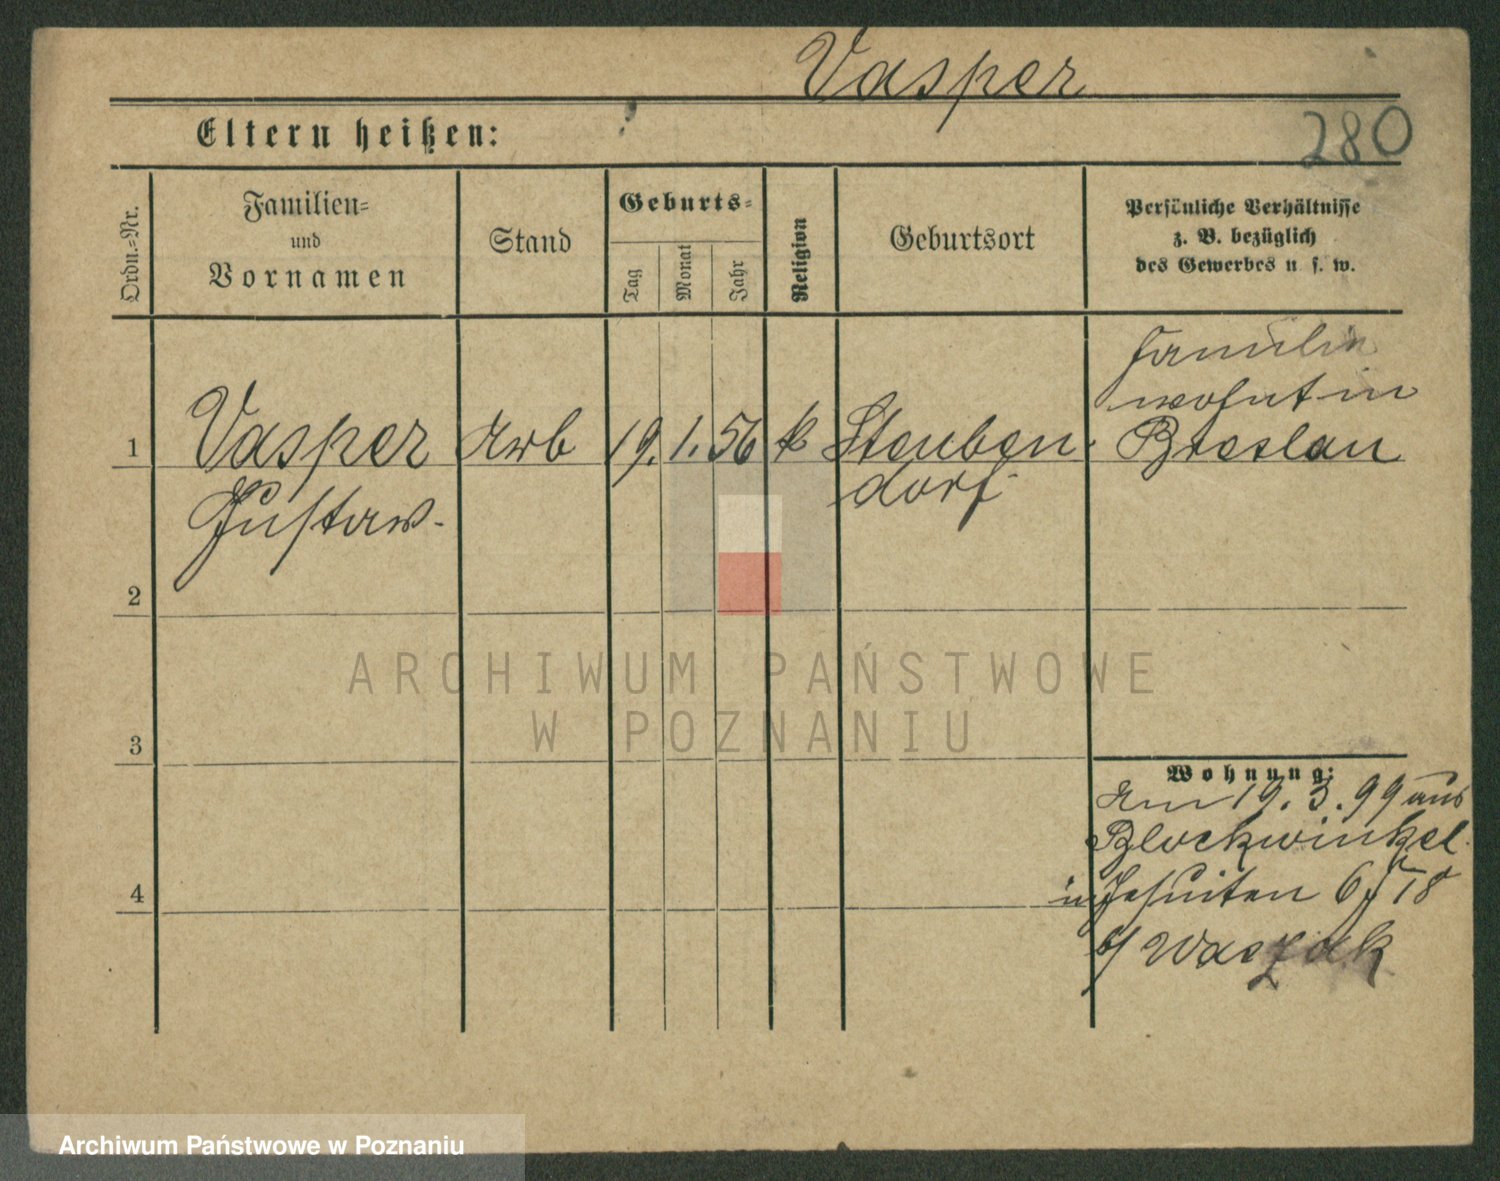 Vasper
280
Eltern heißen:
Ordn.=Nr.
Familien=
und
Vornamen
Stand
Geburts=
Tag
Monat
Jahr
Religion
Geburtsort
Persönliche Verhältnisse
z. B. bezüglich
des Gewerbes u. s. w.
1
Vasper
Gustaw.
Arb
19. 1. 56
k
Steuben
dorf
Familie
wohnt in
Breslau
2
3
4
Wohnung:
Am 19. 3. 99 aus
Blockwinkel
in Jesuiten 6 18
b/ Waszak
ARCHIWUM PAŃSTWOWE
W POZNANIU
Archiwum Państwowe w Poznaniu